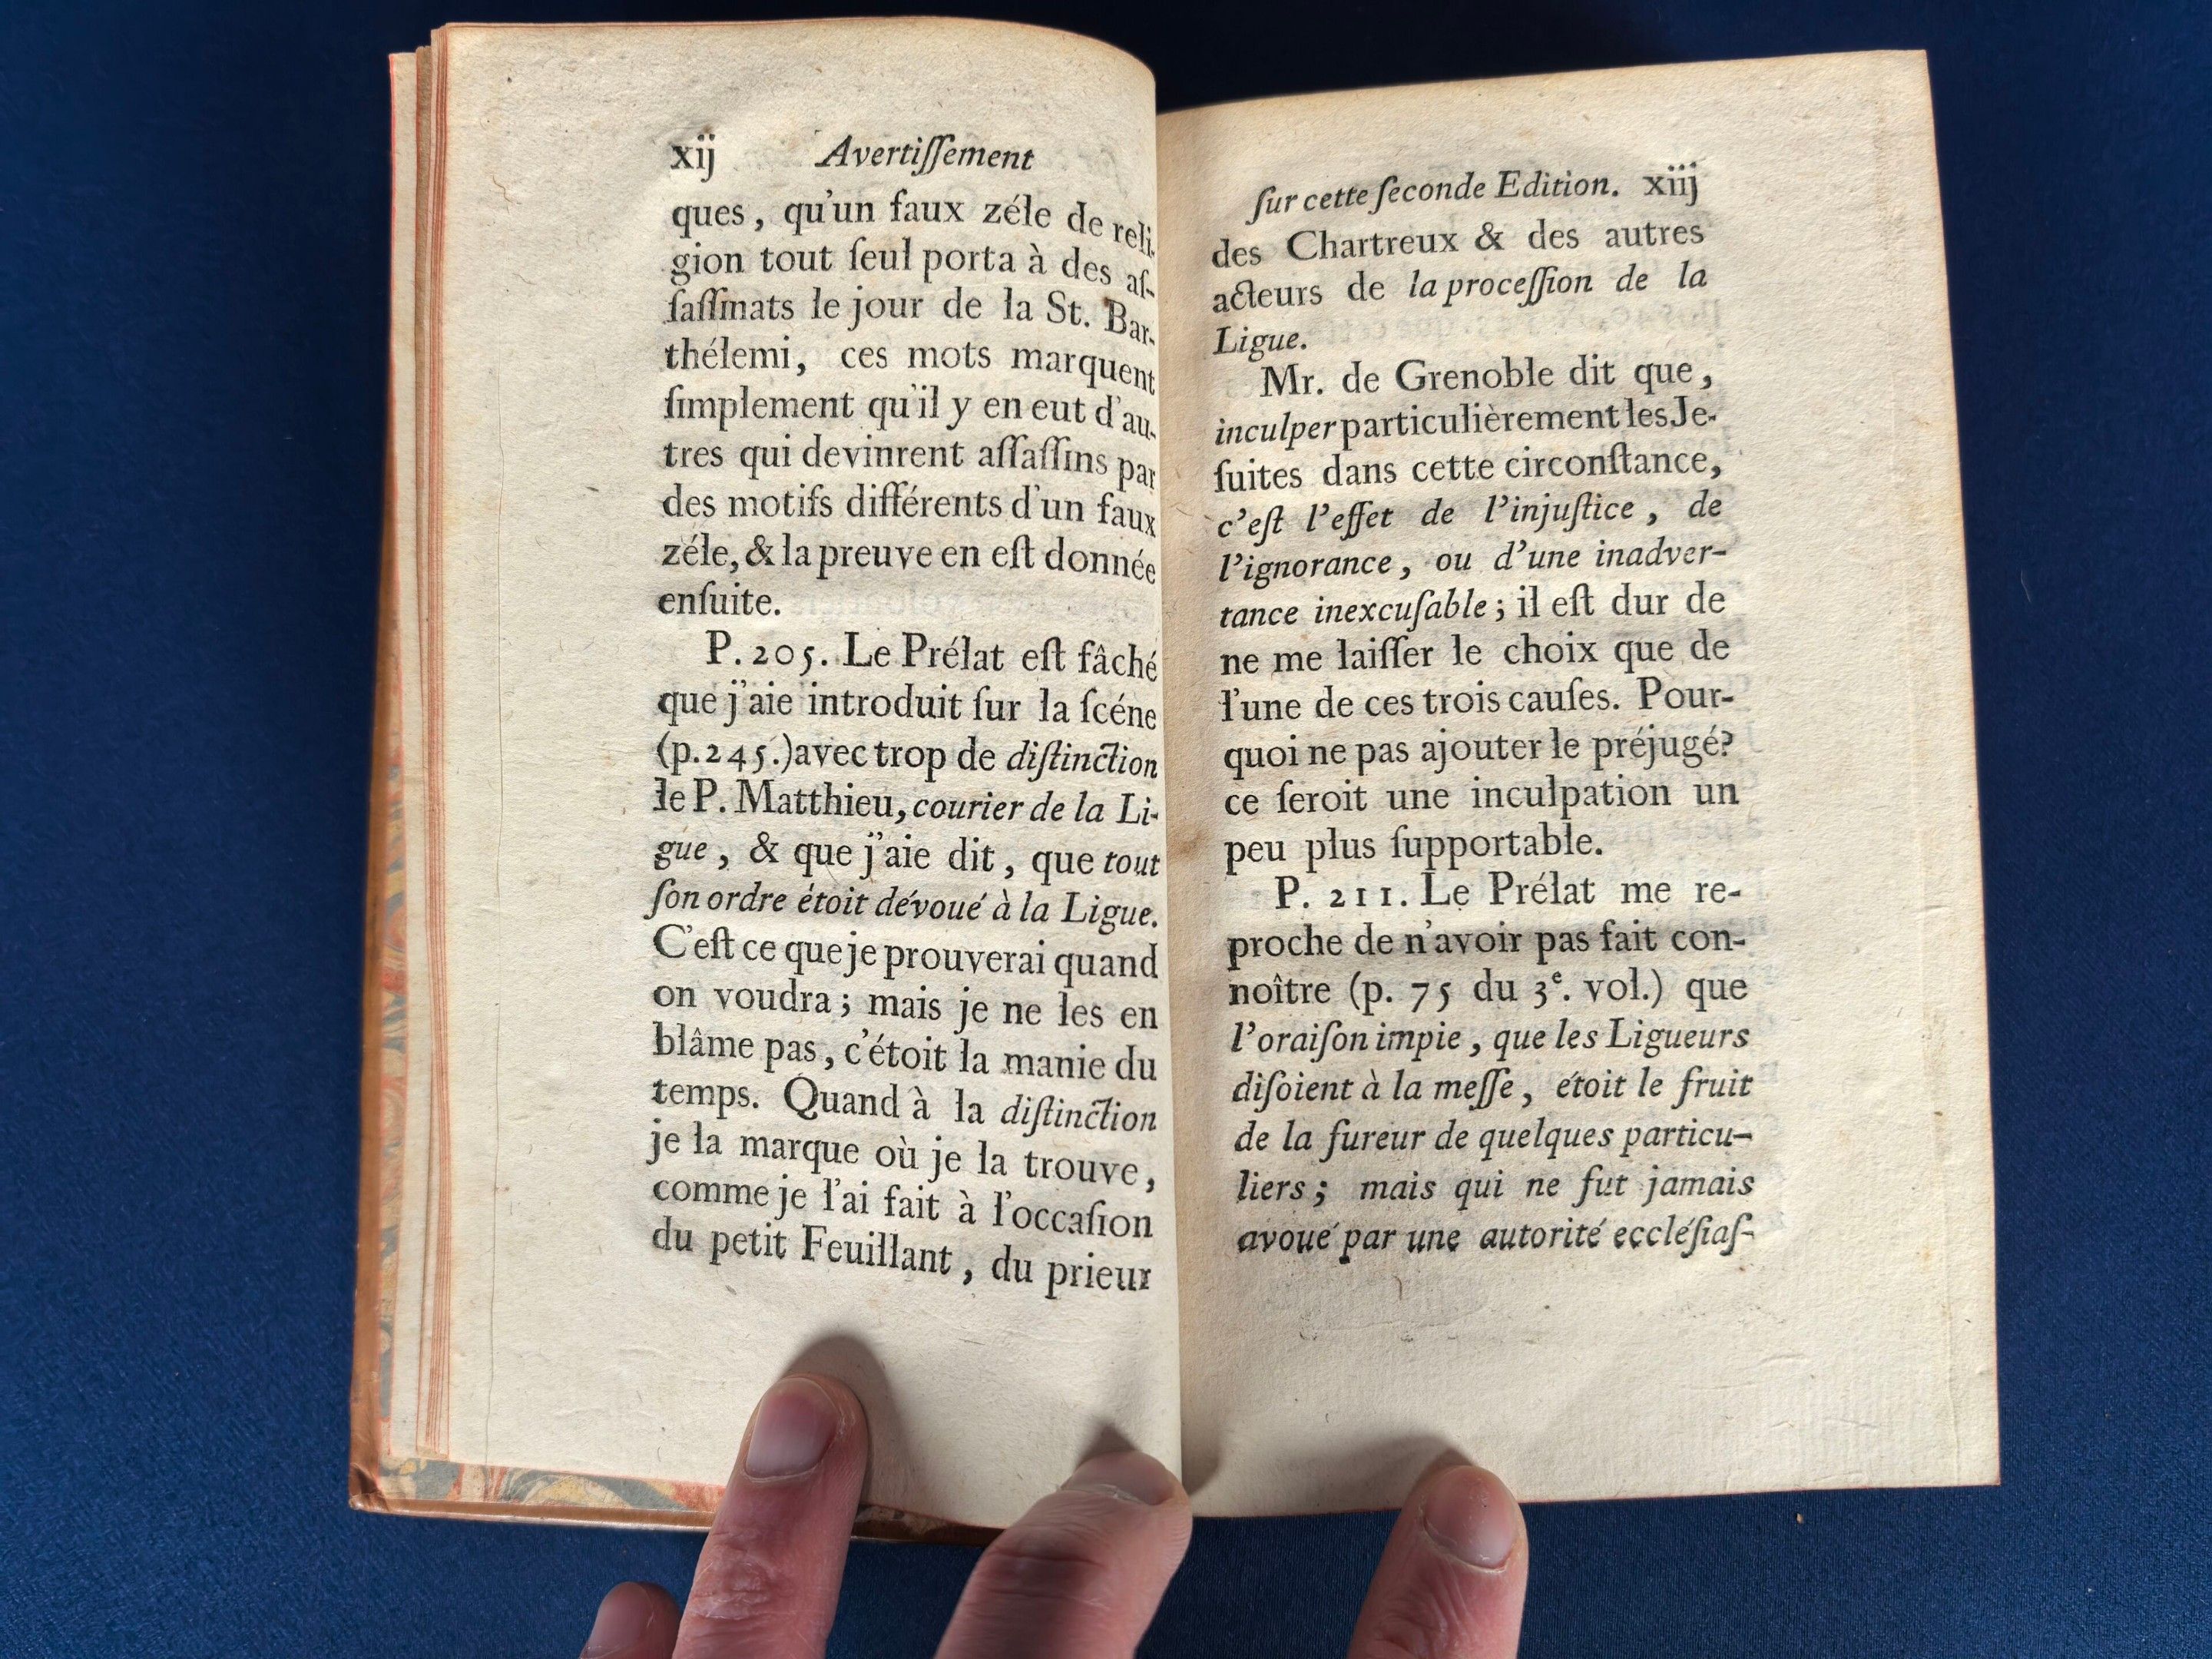 xij Avertiſſement
ques, qu'un faux zéle de reli-
gion tout ſeul porta à des aſ-
ſaſſinats le jour de la St. Bar-
thélemi, ces mots marquent
ſimplement qu'il y en eut d'au-
tres qui devinrent aſſaſſins par
des motifs différents d'un faux
zéle, & la preuve en eſt donnée
enſuite.
P. 205. Le Prélat eſt fâché
que j'aie introduit ſur la ſcéne
(p. 245.) avec trop de diſtinction
le P. Matthieu, courier de la Li-
gue, & que j'aie dit, que tout
ſon ordre étoit dévoué à la Ligue.
C'eſt ce que je prouverai quand
on voudra; mais je ne les en
blâme pas, c'étoit la manie du
temps. Quand à la diſtinction
je la marque où je la trouve,
comme je l'ai fait à l'occaſion
du petit Feuillant, du prieur
ſur cette ſeconde Edition. xiij
des Chartreux & des autres
acteurs de la proceſſion de la
Ligue.
Mr. de Grenoble dit que,
inculper particulièrement les Je-
ſuites dans cette circonſtance,
c'eſt l'effet de l'injuſtice, de
l'ignorance, ou d'une inadver-
tance inexcuſable; il eſt dur de
ne me laiſſer le choix que de
l'une de ces trois cauſes. Pour-
quoi ne pas ajouter le préjugé?
ce ſeroit une inculpation un
peu plus ſupportable.
P. 211. Le Prélat me re-
proche de n'avoir pas fait con-
noître (p. 75 du 3e. vol.) que
l'oraiſon impie, que les Ligueurs
diſoient à la meſſe, étoit le fruit
de la fureur de quelques particu-
liers; mais qui ne fut jamais
avoué par une autorité eccléſiaſ-